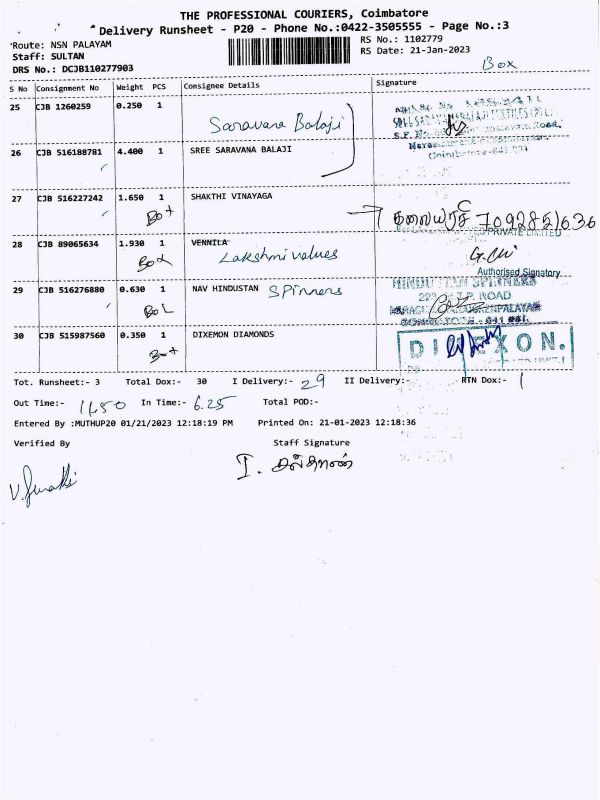 THE PROFESSIONAL COURIERS, Coimbatore
Delivery Runsheet - P20 - Phone No.:0422-3505555 - Page No.:3
Route: NSN PALAYAM
RS No.: 1102779
Staff: SULTAN
RS Date: 21-Jan-2023
DRS No.: DCJB110277903
Box
S No Consignment No Weight PCS Consignee Details Signature
25 CJB 1260259 0.250 1 Saravana Balaji
26 CJB 516188781 4.400 1 SREE SARAVANA BALAJI
27 CJB 516227242 1.650 1 SHAKTHI VINAYAGA
Box
PRIVATE LIMITED
28 CJB 89065634 1.930 1 VENNILA
Box Lakshmi values
Authorised Signatory
29 CJB 516276880 0.630 1 NAV HINDUSTAN Spinners
HINDUSTAN SPINNERS
Box
30 CJB 515987560 0.350 1 DIXEMON DIAMONDS
Box
Tot. Runsheet:- 3 Total Dox:- 30 I Delivery:- 29 II Delivery:- RTN Dox:- 1
Out Time:- 11.50 In Time:- 6.25 Total POD:-
Entered By :MUTHUP20 01/21/2023 12:18:19 PM Printed On: 21-01-2023 12:18:36
Verified By Staff Signature